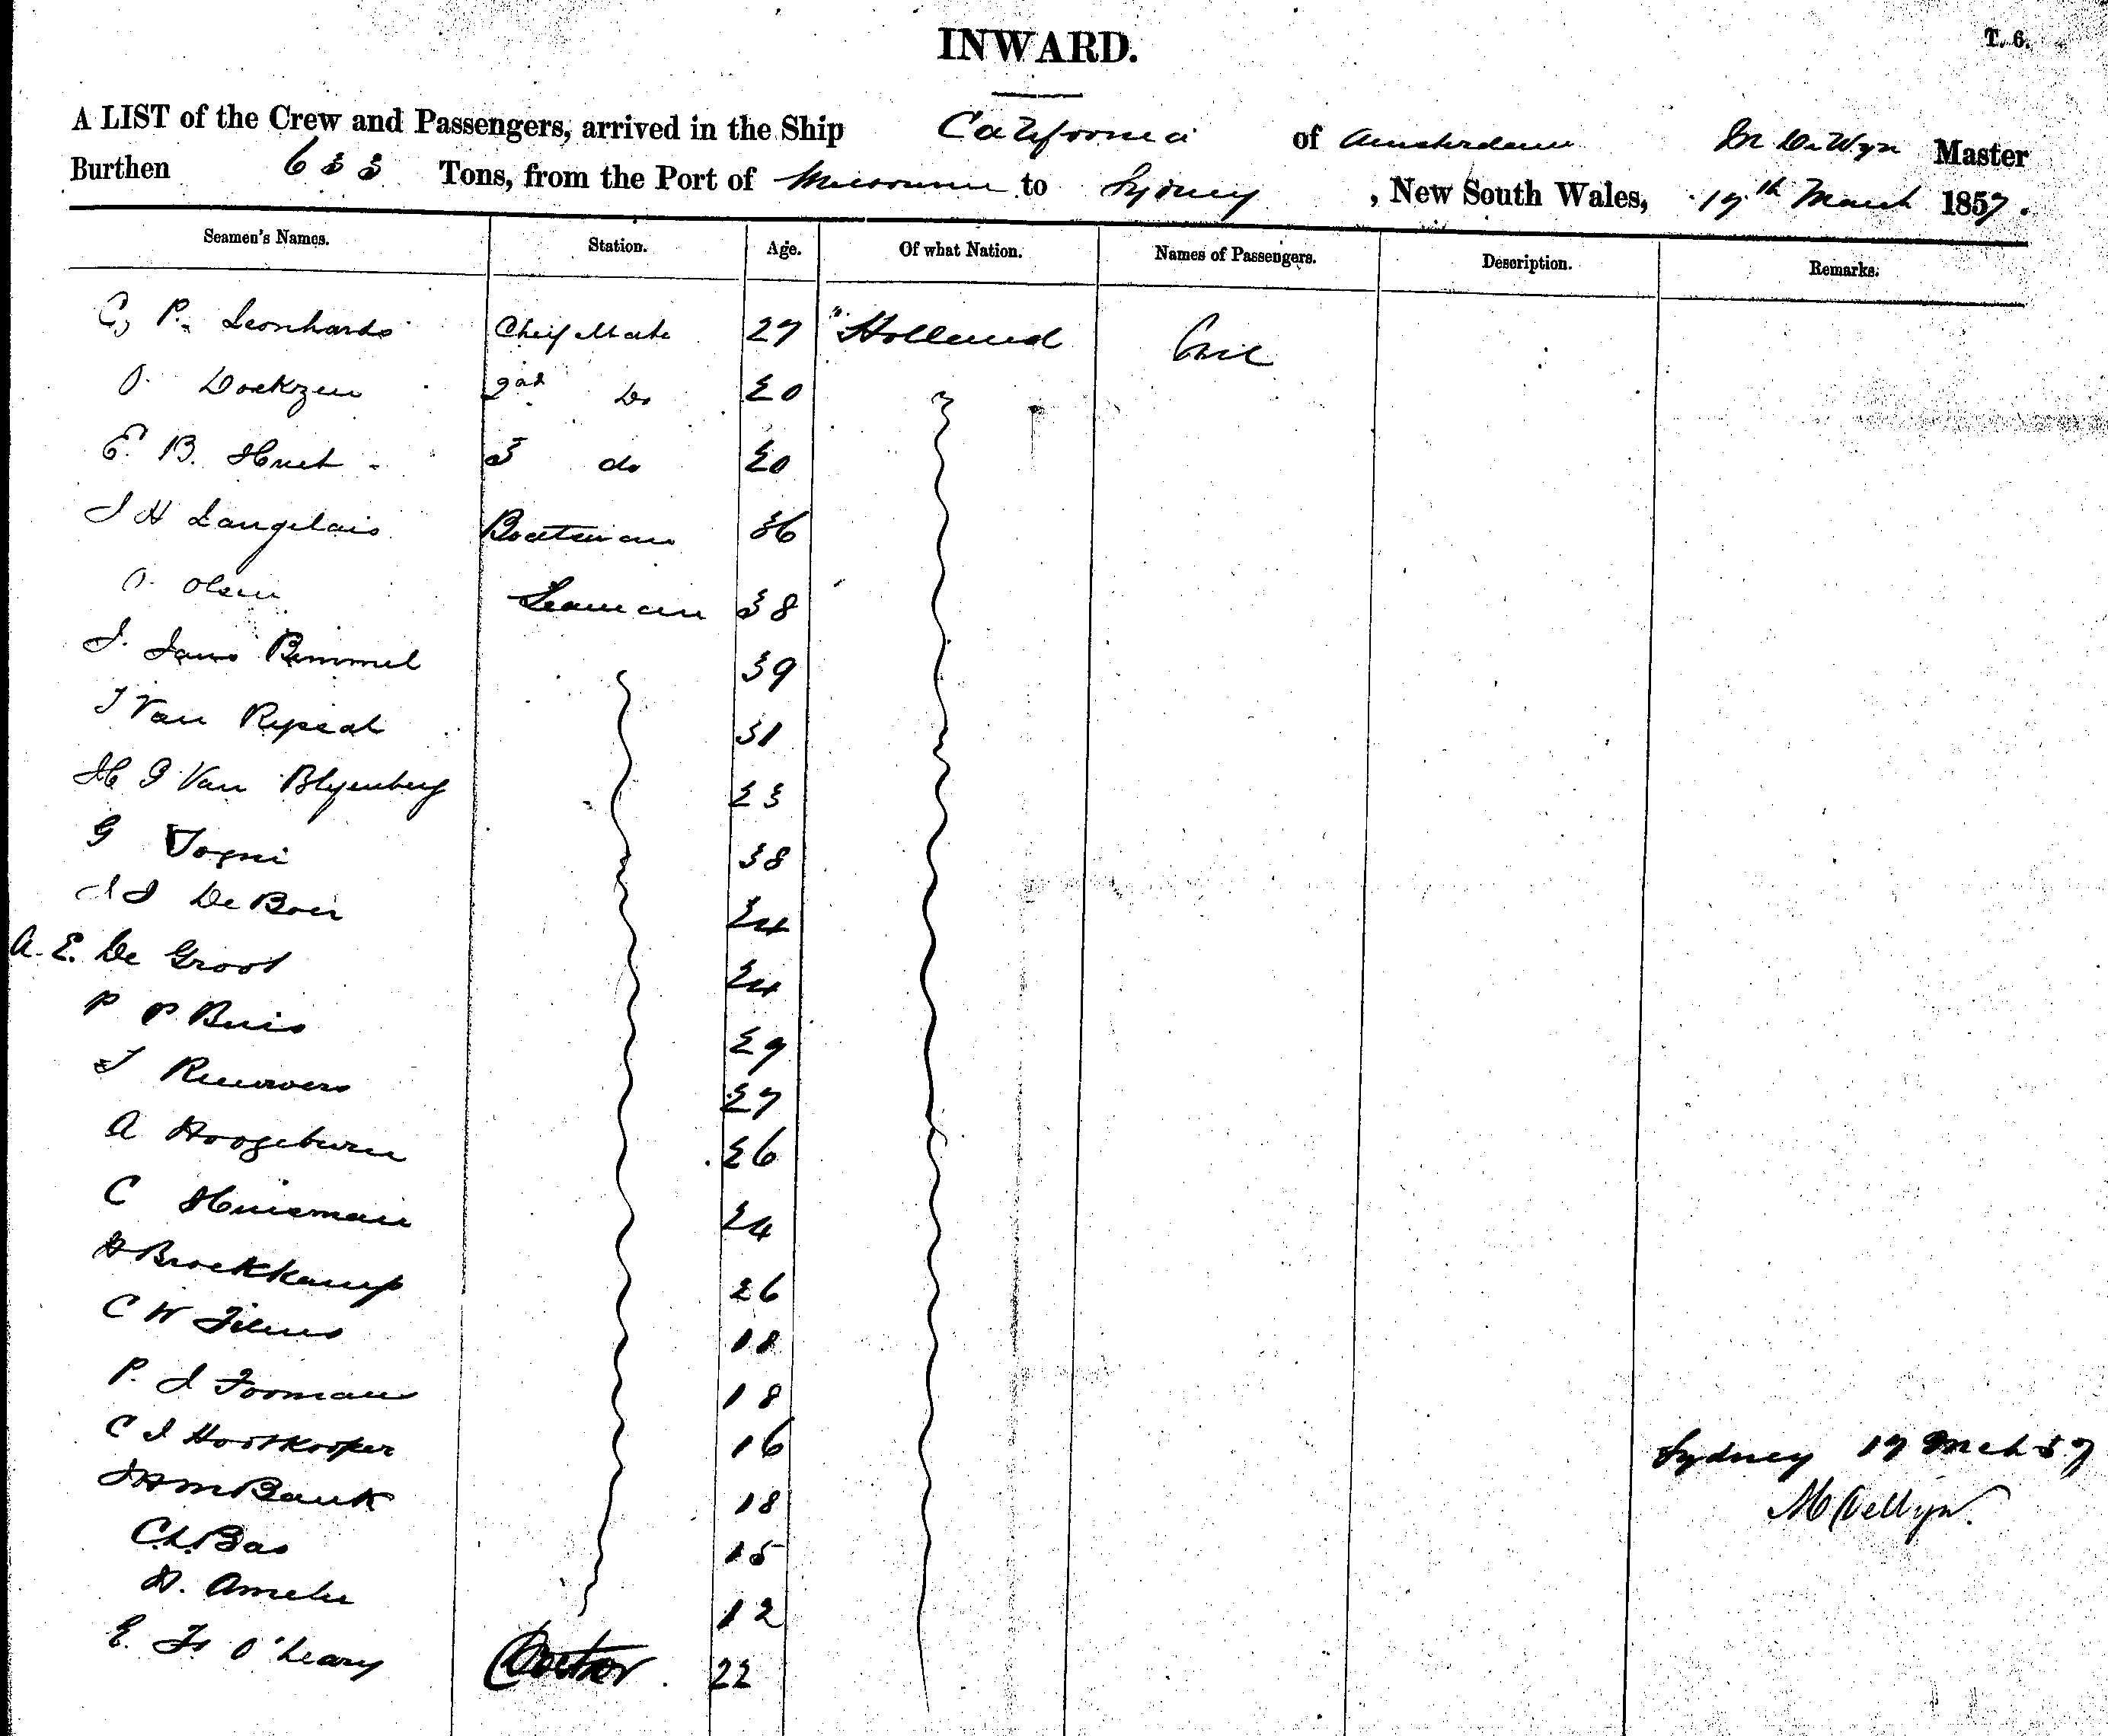 INWARD.
T. 6.
A LIST of the Crew and Passengers, arrived in the Ship California of Amsterdam M De Wyn Master
Burthen 633 Tons, from the Port of Melbourne to Sydney, New South Wales, 17th March 1857.
Seamen's Names. Station. Age. Of what Nation. Names of Passengers. Description. Remarks.
C. P. Leonhards Cheif Mate 27 Holland
O. Doekzen 2nd Do 20
E. B. Huet 3 do 20
J H Langelais Boatman 36
O. Olsen Seaman 38
J. Jans Bimmel 39
J Van Rysealt 31
H J Van Blyenberg 23
G Togni 38
J J De Boer 24
A. E. De Groot 24
P P Buis 29
J 27
A 26
C Huisman 24
H Broekkamp 26
C W 18
P. J Fooman 18
C J Hootkooper 16
J H M Bank 18
C. L. Bas 15
H. 12
E. Fs O'Leary Doctor 22
Sydney 17 Mch 57
M de Wyn.